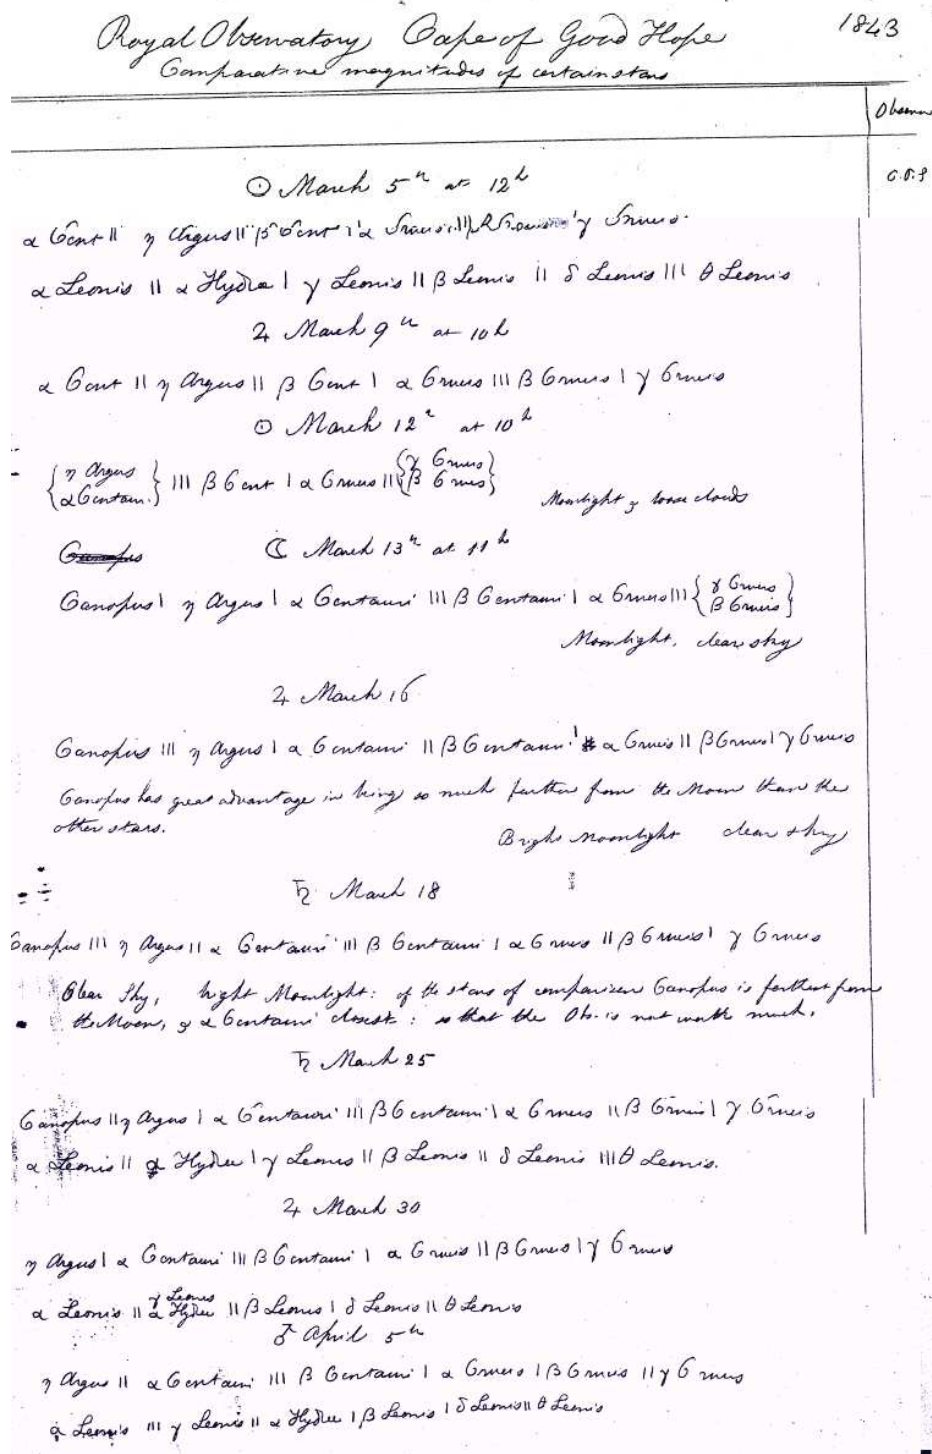 Royal Observatory Cape of Good Hope 1843
Comparative magnitudes of certain stars
Observer
☉ March 5th at 12h C.P.S
α Cent || η Argus || β Cent | α Crucis ||| β Crucis | γ Crucis.
α Leonis || α Hydræ | γ Leonis || β Leonis || δ Leonis ||| θ Leonis
♃ March 9th at 10h
α Cent || η Argus || β Cent | α Crucis ||| β Crucis | γ Crucis
☉ March 12th at 10h
{η Argus
α Centauri.} ||| β Cent | α Crucis || {γ Crucis
β Crucis}
Moonlight & loose clouds
Canopus ☾ March 13th at 11h
Canopus | η Argus | α Centauri ||| β Centauri | α Crucis ||| {γ Crucis
β Crucis}
Moonlight. clear sky
♃ March 16
Canopus ||| η Argus | α Centauri || β Centauri | α Crucis || β Crucis | γ Crucis
Canopus has great advantage in being so much farther from the Moon than the
other stars.
Bright Moonlight clear sky
♄ March 18
Canopus ||| η Argus || α Centauri ||| β Centauri | α Crucis || β Crucis | γ Crucis
Clear Sky, bright Moonlight: of the stars of comparison Canopus is farthest from
the Moon, & α Centauri closest: so that the Obs. is not worth much.
♄ March 25
Canopus || η Argus | α Centauri ||| β Centauri | α Crucis || β Crucis | γ Crucis
α Leonis || α Hydræ | γ Leonis || β Leonis || δ Leonis ||| θ Leonis.
♃ March 30
η Argus | α Centauri ||| β Centauri | α Crucis || β Crucis | γ Crucis
α Leonis || γ Leonis
α Hydræ || β Leonis | δ Leonis || θ Leonis
♂ April 5th
η Argus || α Centauri ||| β Centauri | α Crucis | β Crucis || γ Crucis
α Leonis ||| γ Leonis || α Hydræ | β Leonis | δ Leonis || θ Leonis